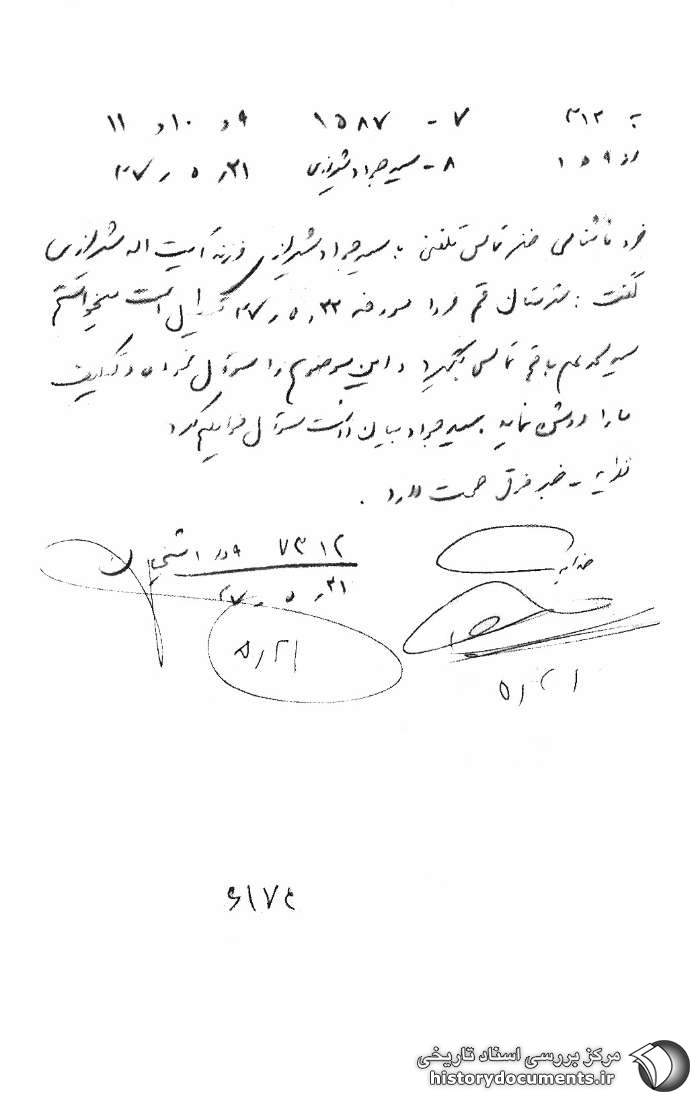 به ۳۱۲ ۷ - ۱۵۸۷ ۹ و ۱۰ و ۱۱
از ۹ ۵ ۱ ۸ - سید جواد شیرازی ۳۱ر ۵ ر ۴۷
فرد ناشناسی ضمن تماس تلفنی با سید جواد شیرازی فرزند آیت اله شیرازی
گفت: دبیرستان قم فردا مورخه ۳۲ر ۵ ر ۴۷ تعطیل است میخواستم
با قم تماس بگیرید و این موضوع را سئوال نموده و تکلیف
ما را روشن نماید. سید جواد بیان داشت سئوال خواهم کرد
نظریه - خبر فوق صحت دارد.
۷۳۱۲
۳۱ر ۵ ر ۴۷
۵٫۳۱
۵٫۳۱
۶۱۷۴
مرکز بررسی اسناد تاریخی
historydocuments.ir